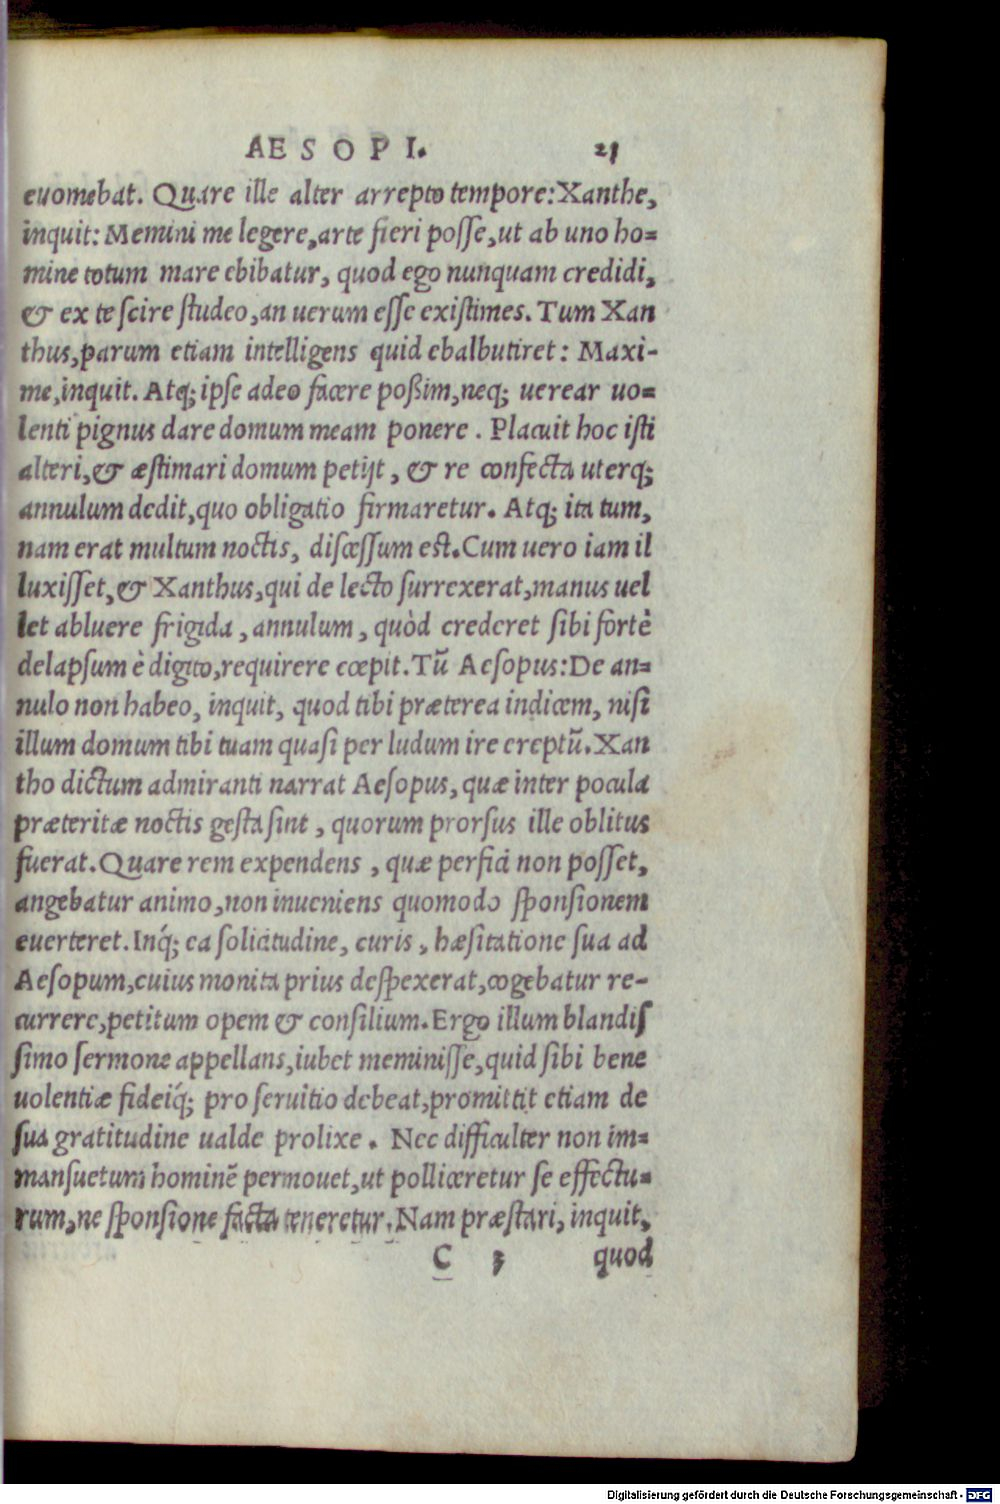 AESOPI. 21
euomebat. Quare ille alter arrepto tempore: Xanthe,
inquit: Memini me legere, arte fieri posse, ut ab uno ho=
mine totum mare ebibatur, quod ego nunquam credidi,
& ex te scire studeo, an uerum esse existimes. Tum Xan
thus, parum etiam intelligens quid ebalbutiret: Maxi-
me, inquit. Atq; ipse adeo facere poßim, neq; uerear uo=
lenti pignus dare domum meam ponere. Placuit hoc isti
alteri, & æstimari domum petijt, & re confecta uterq;
annulum dedit, quo obligatio firmaretur. Atq; ita tum,
nam erat multum noctis, discessum est. Cum uero iam il
luxisset, & Xanthus, qui de lecto surrexerat, manus uel
let abluere frigida, annulum, quòd crederet sibi fortè
delapsum è digito, requirere cœpit. Tũ Aesopus: De an=
nulo non habeo, inquit, quod tibi præterea indicem, nisi
illum domum tibi tuam quasi per ludum ire ereptũ. Xan
tho dictum admiranti narrat Aesopus, quæ inter pocula
præteritæ noctis gesta sint, quorum prorsus ille oblitus
fuerat. Quare rem expendens, quæ perfici non posset,
angebatur animo, non inueniens quomodo sponsionem
euerteret. Inq́; ea solicitudine, curis, hæsitatione sua ad
Aesopum, cuius monita prius despexerat, cogebatur re-
currere, petitum opem & consilium. Ergo illum blandis
simo sermone appellans, iubet meminisse, quid sibi bene
uolentiæ fideiq́; pro seruitio debeat, promittit etiam de
sua gratitudine ualde prolixe. Nec difficulter non im=
mansuetum hominẽ permouet, ut polliceretur se effectu=
rum, ne sponsione facta teneretur. Nam præstari, inquit,
C 3 quod
Digitalisierung gefördert durch die Deutsche Forschungsgemeinschaft - DFG